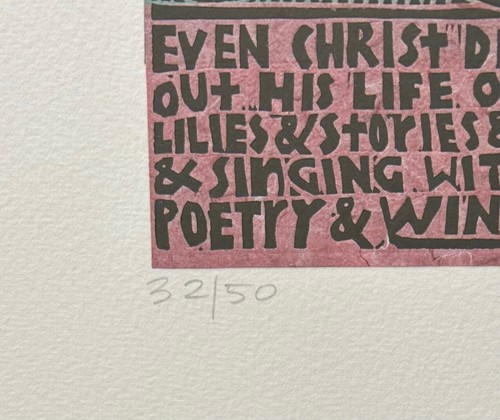 EVEN CHRIST
OUT HIS LIFE
LILIES & STORIES &
& SINGING
POETRY &
32/50